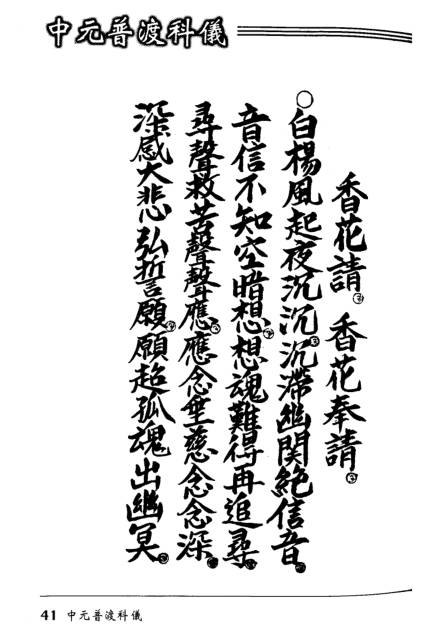 中元普渡科儀
香花請。香花奉請。
○白楊風起夜沉沉。沉滯幽関絶信音。
音信不知空暗想。想魂難得再追尋。
尋聲救苦聲聲應。應念垂慈念念深。
深感大悲弘誓願。願超孤魂出幽冥。
41 中元普渡科儀